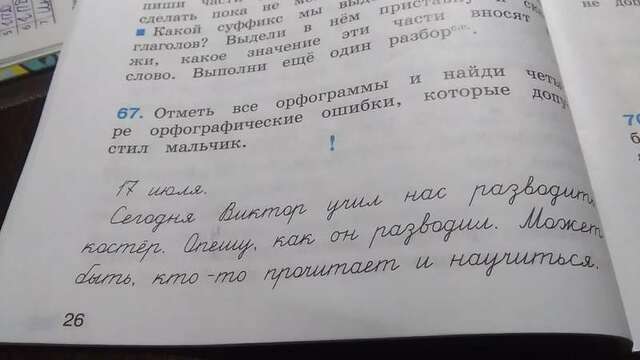 пиши части
сделать пока не
■ Какой суффикс мы
глаголов? Выдели в нём приставку и
жи, какое значение эти части вносят
слово. Выполни ещё один разбор
67. Отметь все орфограммы и найди четы-
ре орфографические ошибки, которые допу-
стил мальчик.
!
17 июля.
Сегодня Виктор учил нас разводить
костёр. Опешу, как он разводил. Может
быть, кто-то прочитает и научиться.
26